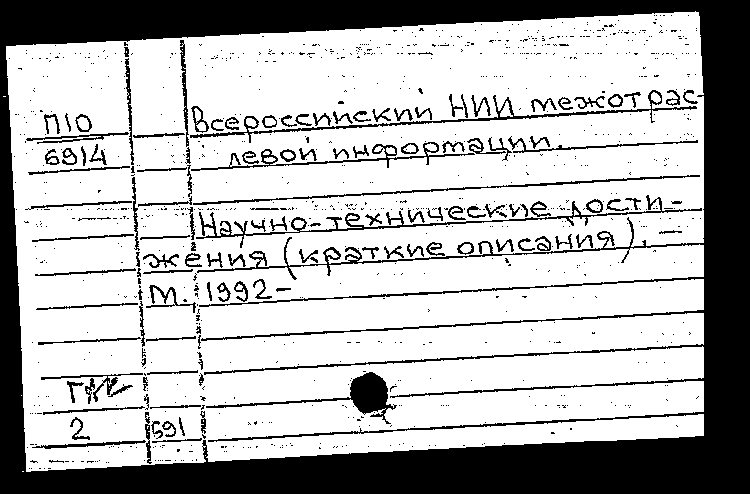 П10 Всероссийский НИИ межотрас-
6914 левой информации.
Научно-технические дости-
жения (краткие описания). —
М., 1992-
2 591